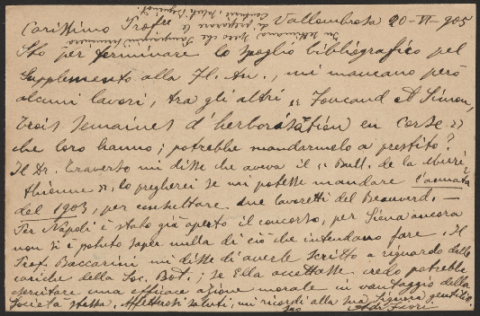 Carissimo Profes
Vallombrosa 20-VI-905
Sto per terminare lo spoglio bibliografico pel
Supplemento alla Fl. An., mi mancano però
alcuni lavori, tra gli altri „ Foucaud et Simon,
trois semaines d'herborisation en Corse „
che loro hanno; potrebbe mandarmelo a prestito?
Il Dr. Traverso mi disse che aveva il „ Bull. de la
„, lo pregherei se mi potesse mandare l'annata
del 1903, per consultare due lavoretti del Beauverd. —
Per Napoli è stato già aperto il concorso, per Siena ancora
non si è potuto saper nulla di ciò che intendano fare. Il
Prof. Baccarini mi disse d'averle scritto a riguardo delle
cariche della Soc. Bot.; se Ella accettasse credo potrebbe
esercitare una efficace azione morale in vantaggio della
Società stessa. Affettuosi saluti, mi ricordi alla sua Signora gentiliss.
suo Adr. Fiori